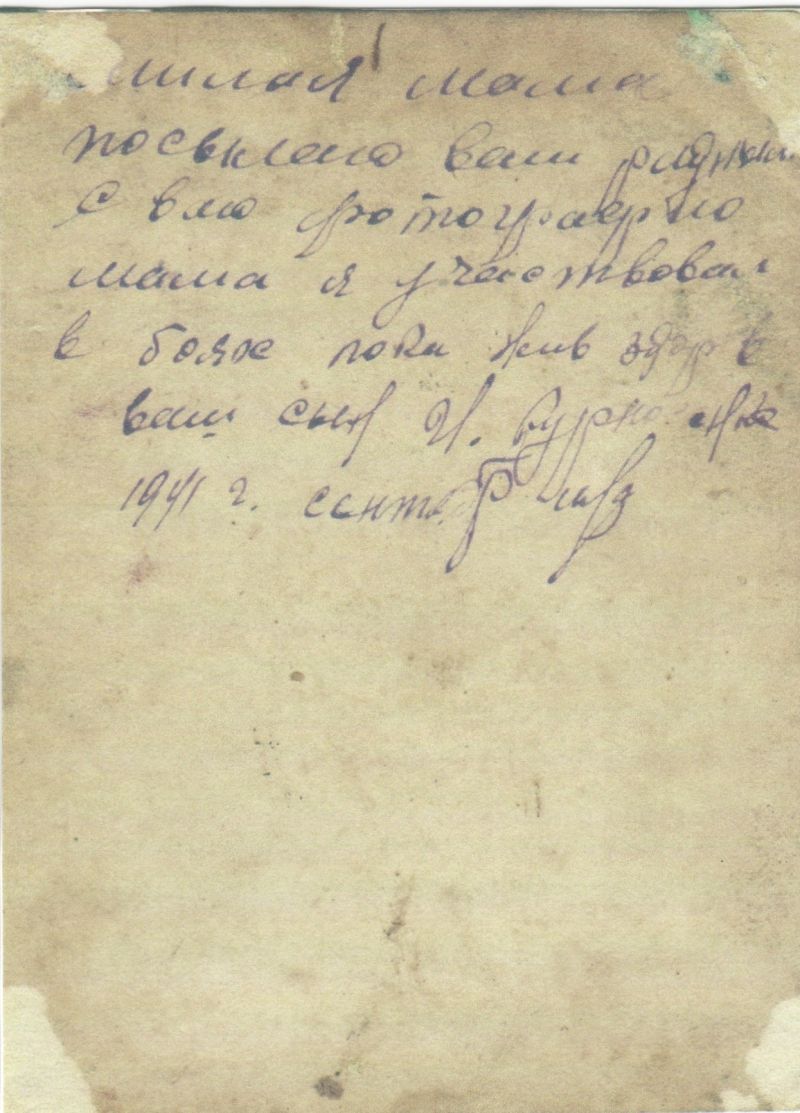 милая мама
посылаю вам
свою фотографию
мама я участвовал
в боях пока жив здоров
ваш сын И.
1941 г. сентябр